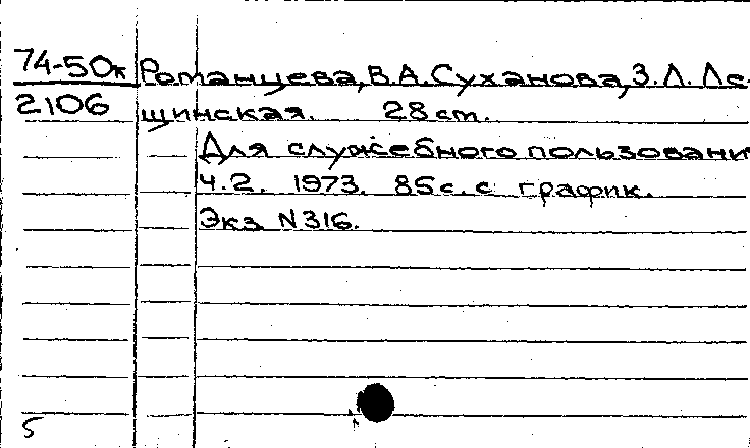 74-50к Романцева, В.А. Суханова, З.Л. Ле
2106 щинская. 28 ст.
Для служебного пользовани
Ч.2. 1973. 85 с. с график.
Экз. N 316.
5